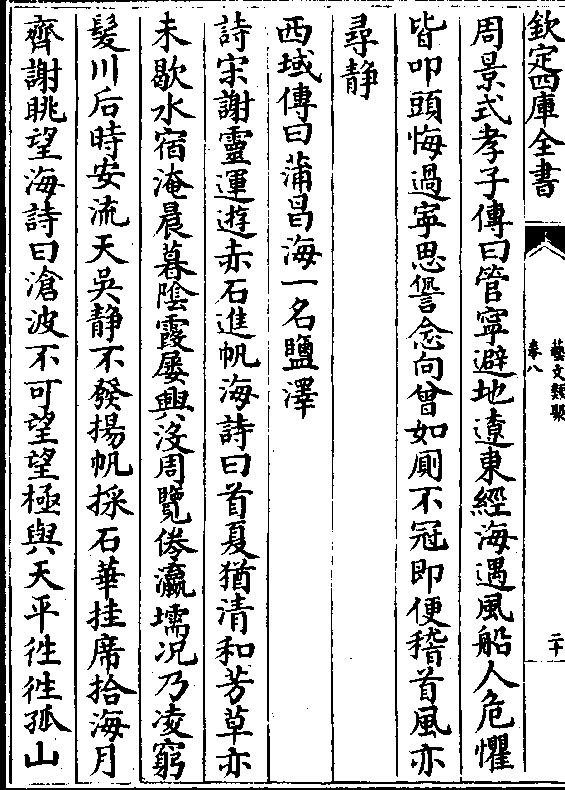 欽定四庫全書
藝文類聚
卷八
二十
周景式孝子傳曰管寧避地遼東經海遇風船人危懼
皆叩頭悔過寧思諐念向曾如厠不冠即便稽首風亦
尋静
西域傳曰蒲昌海一名鹽澤
詩宋謝靈運逰赤石進帆海詩曰首夏猶清和芳草亦
未歇水宿淹晨暮隂霞屢興没周覽倦瀛壖况乃凌窮
髮川后時安流天吳静不發揚帆採石華挂席拾海月
齊謝眺望海詩曰滄波不可望望極與天平徃徃孤山